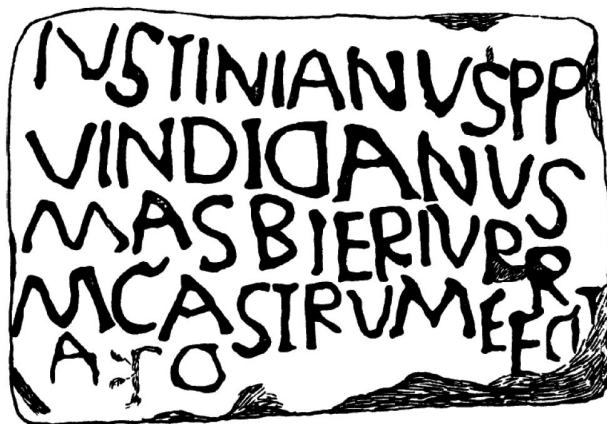 IVSTINIANVSPP
VINDICIANVS
MASBIERIVPR
MCASTRVMFECIT
A O